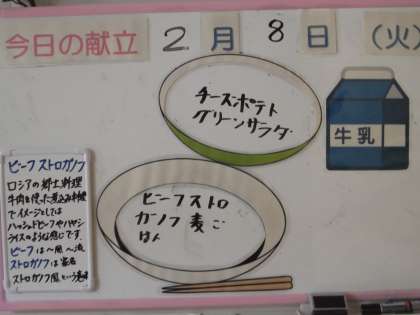 今日の献立 2月 8日 (火)
チーズポテト
グリーンサラダ
牛乳
ビーフストロ
ガノフ麦ご
はん
ビーフ ストロガノフ
ロシアの郷土料理
牛肉を使った煮込み料理
でイメージとしては
ハッシュドビーフやハヤシ
ライスのような感じです
ビーフは〜風〜流
ストロガノフは家名
ストロガノフ風という意味